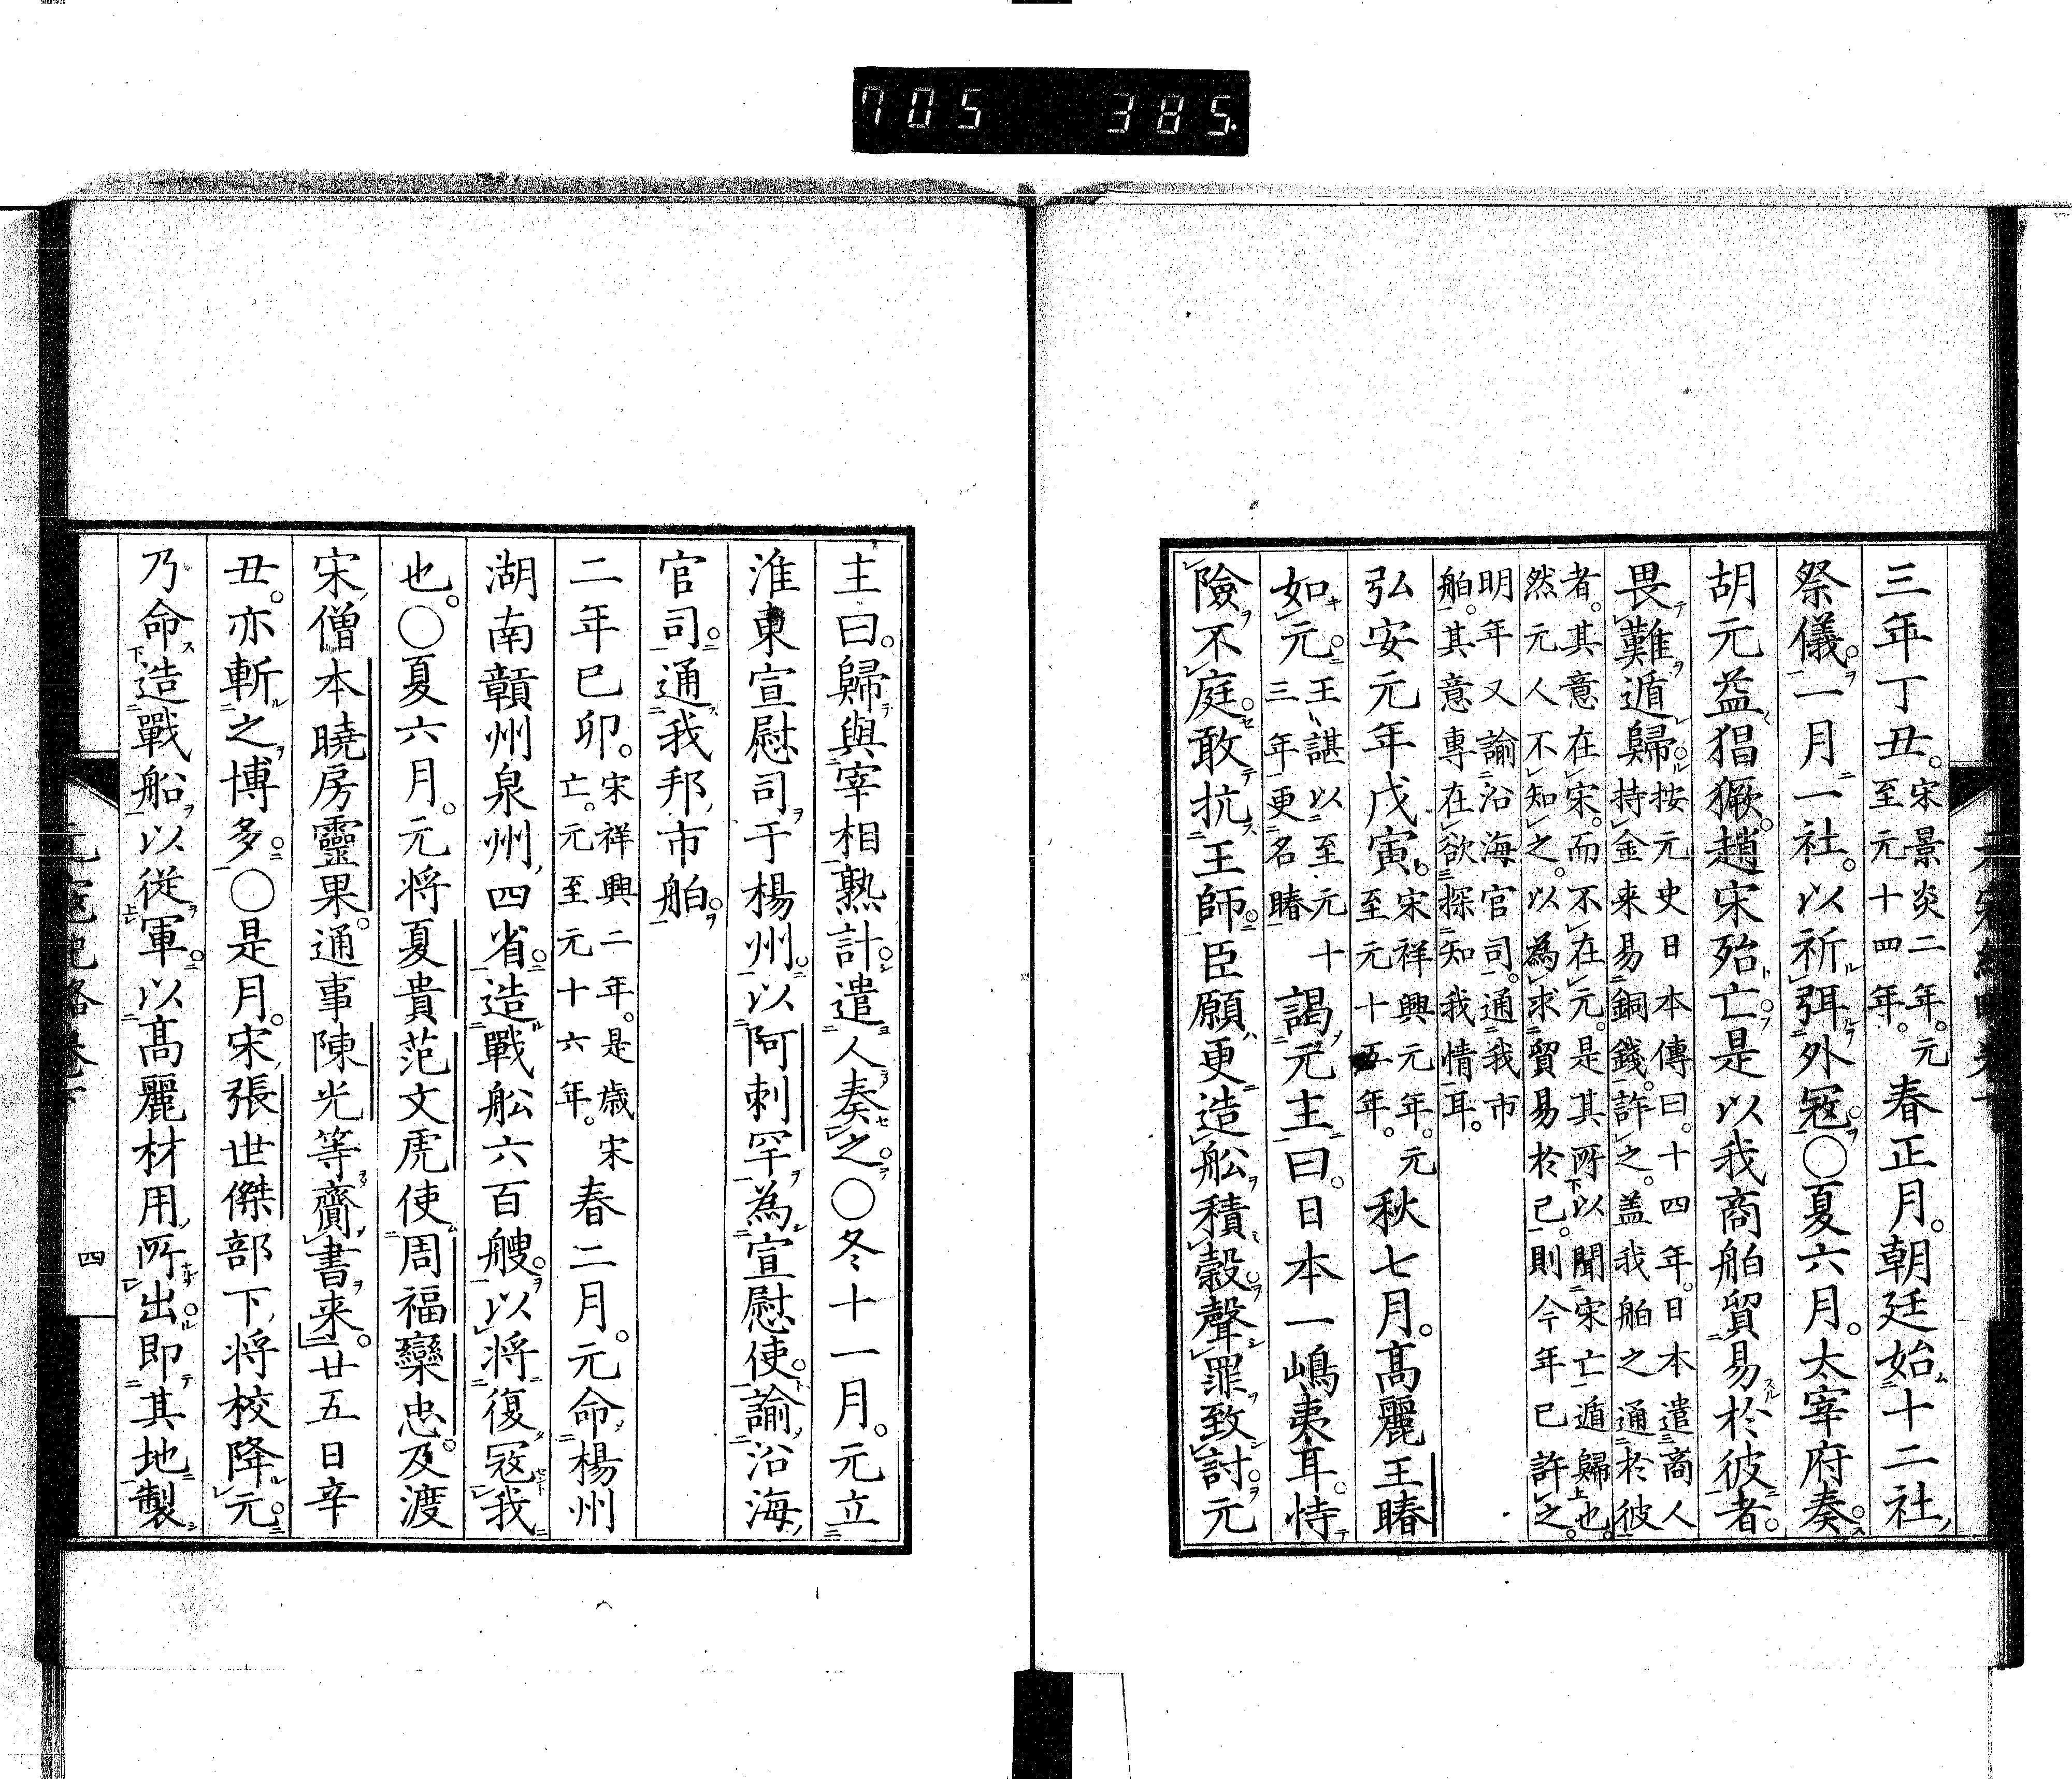 705 385
三年丁丑。宋景炎二年。元至元十四年。春正月。朝廷始十二社
祭儀。一月一社。以祈弭外寇。○夏六月。太宰府奏。
胡元益猖獗。趙宋殆亡。是以我商舶貿易於彼者。
畏難遁歸。按元史日本傳曰。十四年。日本遣商人持金来易銅錢。許之。盖我舶之通於彼
者。其意在宋。而不在元。是其所以聞宋亡遁歸也。然元人不知之。以為求貿易於己。則今年已許之。
明年又諭沿海官司。通我市舶。其意專在欲探知我情耳。
弘安元年戊寅。宋祥興元年。元至元十五年。秋七月。高麗王賰
如元。王諶以至元十三年更名賰謁元主曰。日本一嶋夷耳。恃
險不庭。敢抗王師。臣願更造舩積穀。聲罪致討。元
主曰。歸與宰相熟計。遣人奏之。○冬十一月。元立
淮東宣慰司于楊州。以阿刺罕為宣慰使。諭沿海
官司。通我邦市舶。
二年已卯。宋祥興二年。是歳宋亡。元至元十六年。春二月。元命楊州
湖南贛州泉州四省。造戰舩六百艘。以将復寇我
也。○夏六月。元将夏貴范文虎使周福欒忠。及渡
宋僧本曉房靈果。通事陳光等齎書来。廿五日辛
丑。亦斬之博多。○是月。宋張世傑部下将校降元。
乃命造戰船以從軍。以高麗材用所出即其地製
四